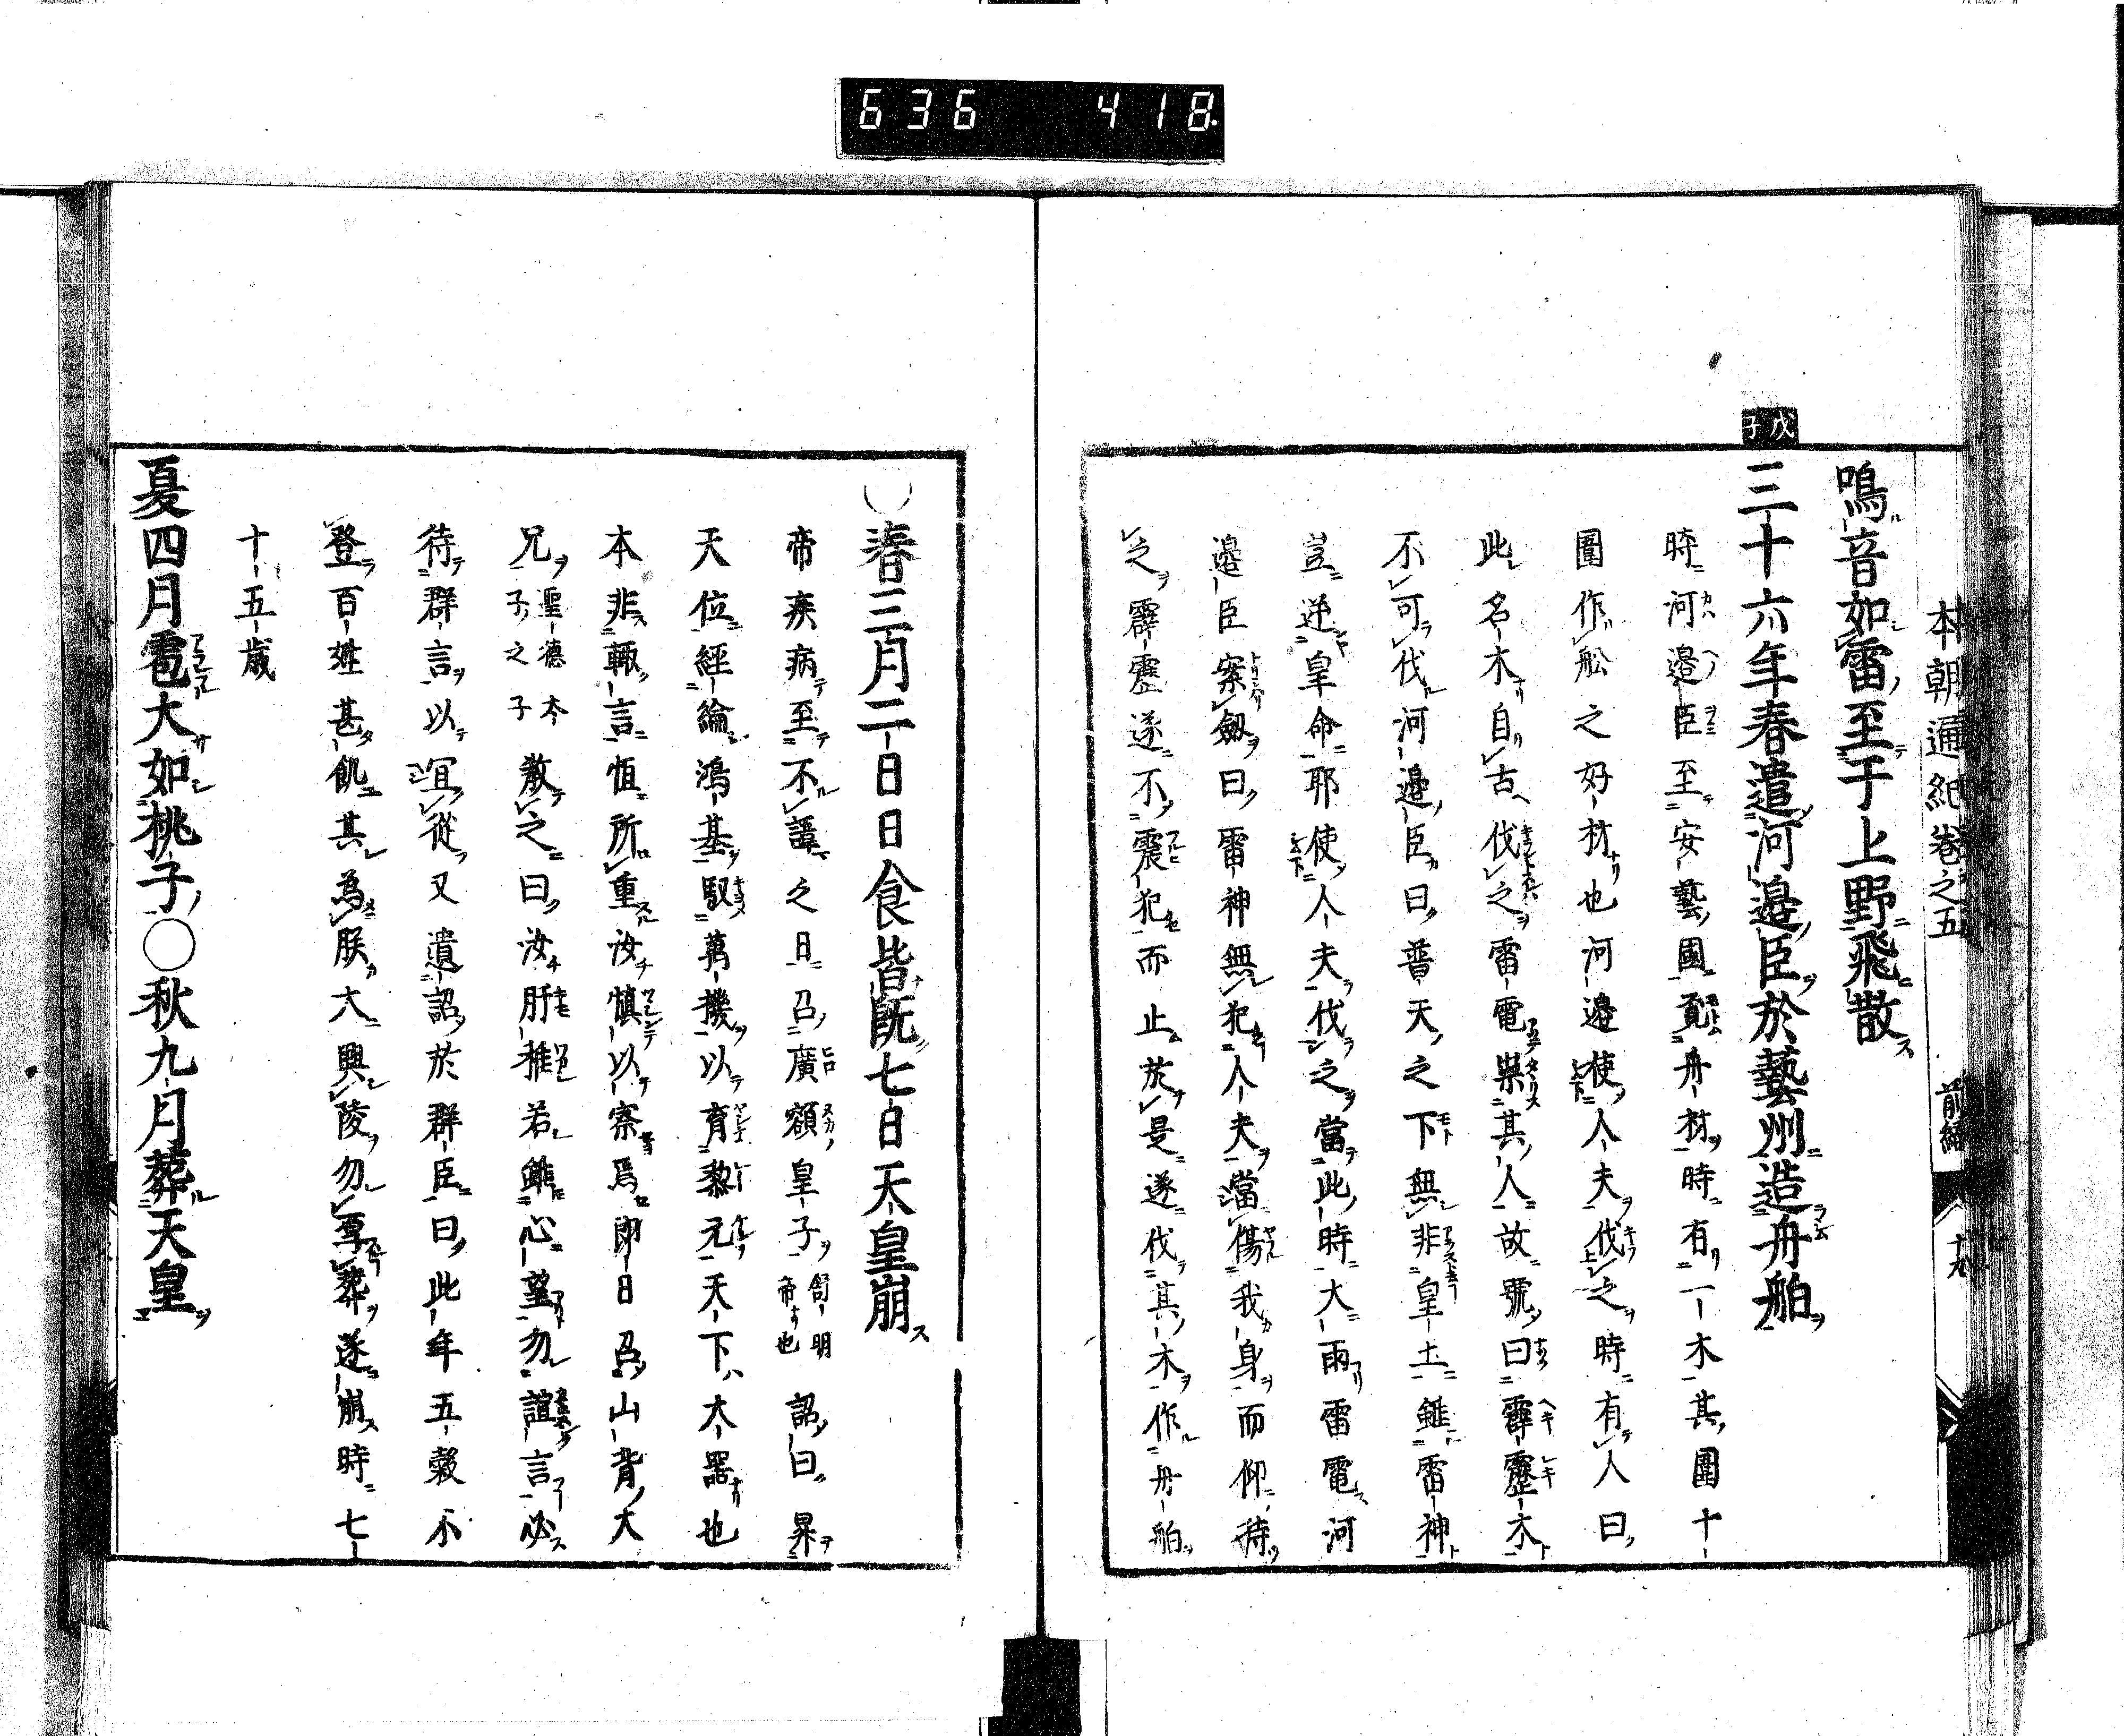 636 418
本朝通紀卷之五 前編 十九
戊子
鳴音如雷至于上野飛散
三十六年春遣河邉臣於藝州造舟舶
時河邉臣至安藝國覓舟材時有一木其圍十
圍作舩之好材也河邉使人夫伐之時有人曰
此名木自古伐之雷電祟其人故號曰霹靂木
不可伐河邉臣曰普天之下無非皇土雖雷神
豈逆皇命耶使人夫伐之當此時大雨雷電河
邉臣案劔曰雷神無犯人夫當傷我身而仰待
之霹靂遂不震犯而止於是遂伐其木作舟舶
○春三月二日日食皆既七日天皇崩
帝疾病至不諱之日召廣額皇子舒明帝也詔曰昇
天位經綸鴻基馭萬機以育黎元天下大器也
本非輙言恒所重汝慎以察焉即日召山背大
兄聖德太子之子敎之曰汝肝稚若雖心望勿諠言必
待群言以宜從又遺詔於群臣曰此年五穀不
登百姓甚飢其為朕大興陵勿厚葬遂崩時七
十五歳
夏四月雹大如桃子○秋九月葬天皇